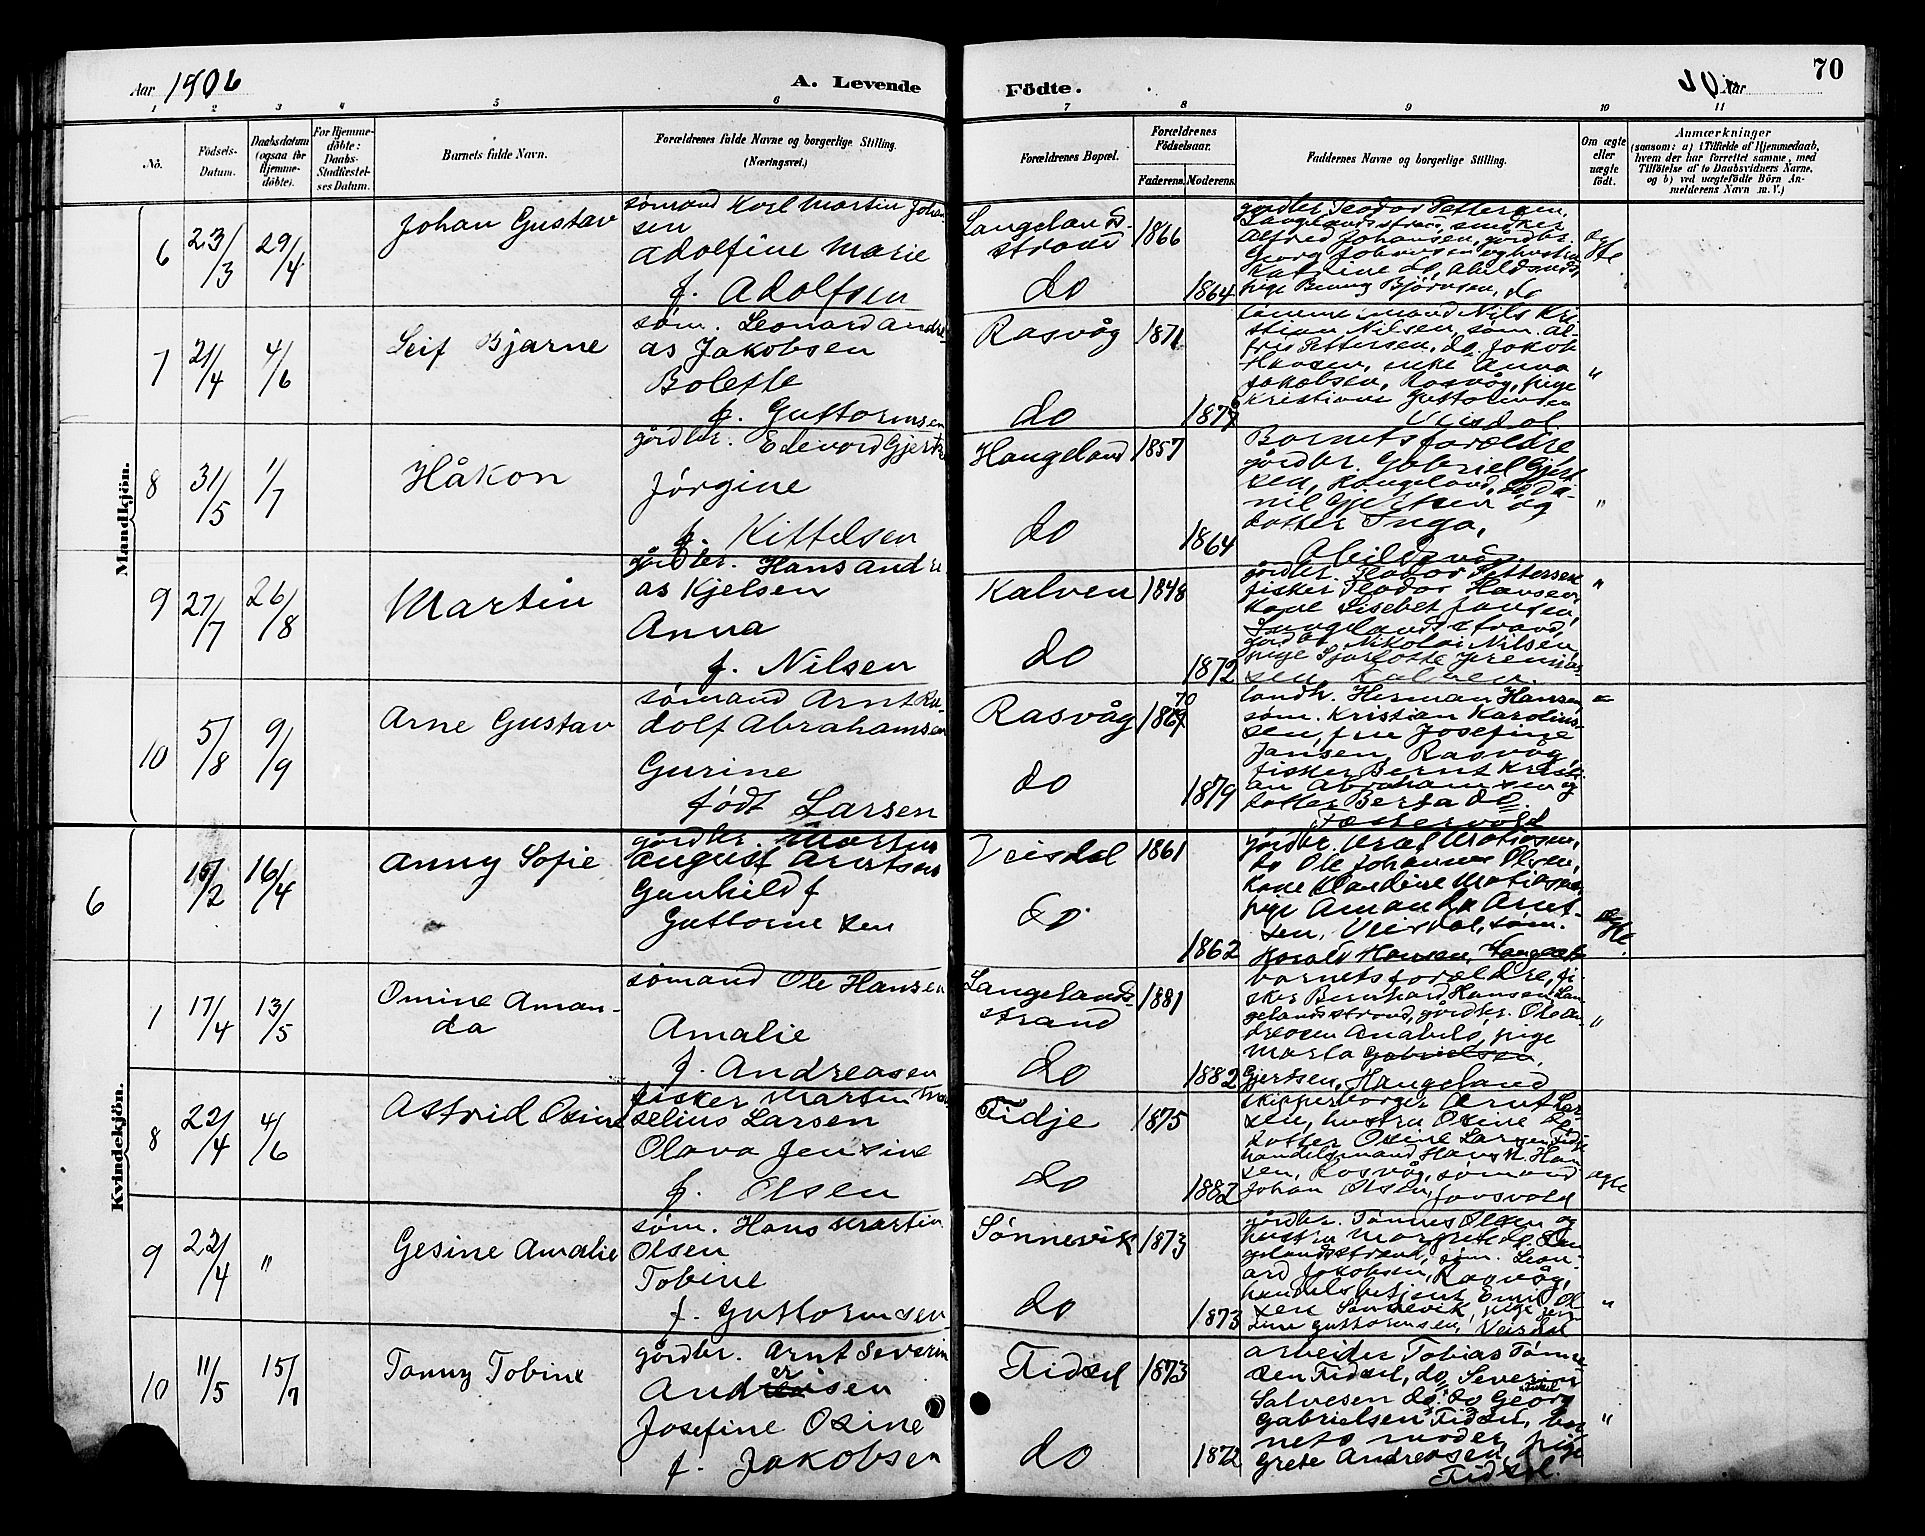 Aar 1906
A. Levende
Födte.
Aar
70
1 2 3 4 5 6 7 8 9 10 11
No.
Födsels-Datum.
Daabsdatum (ogsaa for Hjemme-döbte).
For Hjemme-döbte: Daabs-Stadfæstel-ses Datum.
Barnets fulde Navn.
Forældrenes fulde Navne og borgerlige Stilling. (Næringsvei.)
Forældrenes Bopæl.
Forældrenes Födselsaar.
Faderens. Moderens.
Faddernes Navne og borgerlige Stilling.
Om ægte eller uægte födt.
Anmærkninger
(saasom: a) i Tilfælde af Hjemmedaab, hvem der har forrettet samme, med Tilföielse af to Daabsvidners Navne, og b) ved uægtefödte Börn An-melderens Navn m. V.)
Mandkjön.
6 23/3 29/4 Johan Gustav
sömand Karl Martin Johan
sen
Adolfine Marie
f. Adolfsen
Langelands-
strand 1866
do 1864
gårdbr. Teodor Pettersen,
Langelandsstrand, snedker
Alfred Johansen, gårdbr.
Georg Johansen og hustru
Katrine do, Abildsnes,
pige Benny Björnsen, do
ægte
7 21/4 4/6 Leif Bjarne
søm. Leonard Andre-
as Jakobsen
Bolette
f. Guttormsen
Rasvåg 1871
do 1879
tømmermand Nils Kri
stian Nilsen, søm. Al-
fred Pettersen, do. Jakob
Hansen, enke Anna
Jakobsen, Rasvåg, pige
Kristiane Guttormsen
Veisdal
"
8 31/5 1/7 Håkon
gårdbr. Edevard Gjertse
Jørgine
f. Kittelsen
Haugeland 1857
do 1864
Barnets forældre
gårdbr. Gabriel Gjert
sen, Haugeland, do Da-
niel Gjertsen og
datter Inga,
"
9 27/7 26/8 Martin
gårdbr. Hans Andre
as Kjelsen
Anna
f. Nilsen
Kalven 1848
do 1872
gårdbr. Teodor Pettersen
fisker Teodor Hansen,
kone Lisebet Jansen,
Langelandsstrand,
gårdbr Nikolai Nilsen,
pige Sjarlotte Jeremias
sen Kalven.
"
10 5/8 9/9 Arne Gustav
sømand Arnt Ru-
dolf Abrahamsen
Gurine
født Larsen
Rasvåg 1869 70
do 1879
landh. Herman Hansen
søm. Kristian Karolius
sen, fru Josefine
Jansen, Rasvåg,
fisker Bernt Kristi
an Abrahamsen og
datter Berta do.
"
Kvindekjön.
6 15/2 16/4 Anny Sofie
gårdbr. Martin
August Arntsen
Gunhild f
Guttormsen
Veisdal 1861
do 1862
gårdbr. Aral Matiasen,
do Ole Johannes Olsen,
kone Klandine Matiasen,
pige Amanda Arnt-
sen, Veisdal, søm.
Harald Hansen,
ægte.
1 17/4 13/5 Omine Aman-
da
sømand Ole Hansen
Amalie
f. Andreasen
Langelands-
strand 1881
do 1882
barnets forældre, fi-
sker Bernhard Hansen, Lan
gelandsstrand, gårdbr. Ole An-
dreasen Anabelø, pige
Marta Gabrielsen
Gjertsen, Haugeland
"
8 22/4 4/6 Astrid Osine
fisker Martin Mar
selius Larsen
Olava Jensine
f. Olsen
Tidje 1875
do 1882
skipperborger Arnt Lar
sen, hustru Osine do
datter Osine Larsen Tidje
handelsmand Hans N. Han
sen, Rasvåg, sømand
Johan Olsen, Jaasvold
ægte
9 22/4 " Gesine Amalie
søm. Hans Martin
Olsen
Tobine
f. Guttormsen
Sønnevik 1873
do 1873
gårdbr. Tønnes Olsen og
hustru Margrete do. Lan
gelandsstrand, søm. Leon-
ard Jakobsen, Rasvåg,
handelsbetjent Emil Ol
sen Sønnevik, pige Jen
sine Guttormsen, Veisdal
"
10 11/5 15/7 Tanny Tobine
gårdbr. Arnt Severin
Andersen
Josefine Osine
f. Jakobsen
Fidsel 1873
do 1872
arbeider Tobias Tønne
sen Fidsel, do Severin
Salvesen do, do Georg
Gabrielsen Fidsel, bar
nets moder, pige
Grete Andreasen,
Fidsel.
"